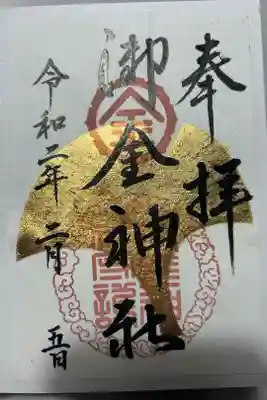 奉拝
御金神社
令和二年二月五日